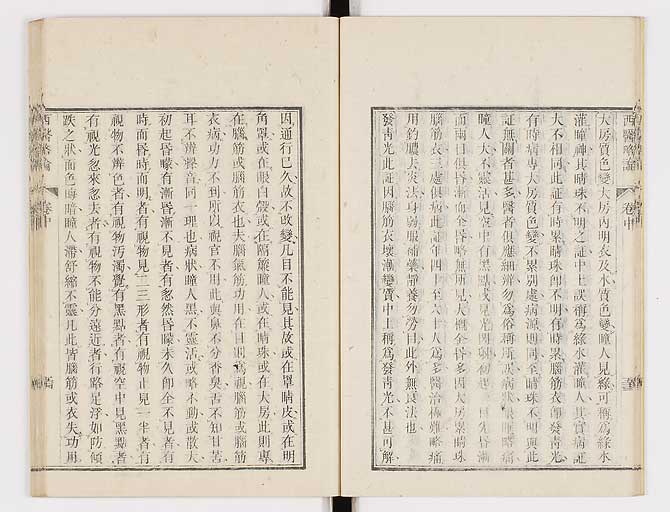 西醫略論
卷中
大房質色變大房內明衣及水質色變瞳人見綠可稱爲綠水
灌瞳神其睛珠不明之証中土誤稱爲綠水灌瞳人其實病証
大不相同此証有時累睛珠卽不明有時累腦筋衣卽發靑光
有時病專大房質色變不累別處病源則同全睛珠不明與此
証無關者甚多醫者俱應細辨勿爲俗稱所誤病狀眼痛
瞳人大不靈活見空中有黑點或見光閃初起一目先昏漸
而兩目俱昏漸而全昏略無所見大槪全昏多因大房累睛珠
腦筋衣三處俱病此証年四十至六十人爲多醫治極難略痛
用釣膿去炎法身弱服補藥靜養勿勞目此外無良法也
發靑光此証因腦筋衣壞漸變質中土稱爲發靑光不甚可解
因通行已久故不改變凡目不能見其故或在睪睛皮或在明
角罩或在眼白殼或在隔簾瞳人或在睛珠或在大房此則專
在腦筋或腦筋衣也夫腦氣筋功用在目則爲視腦筋或腦筋
衣病功力不到所以視官不用此與鼻不分香臭舌不知甘苦
耳不辨聲音同一理也病狀瞳人黑不靈活或略不動或散大
初起昏矇有漸昏漸不見者有忽然昏矇未久卽全不見者有
時而昏時而明者有視物見二三形者有視物止見一半者有
視物不辨色者有視物汚濁覺有黑點者有視空中見黑點者
有視光忽來忽去者有視物不能分遠近者行路足浮如防傾
跌之狀面色晦暗瞳人滯舒縮不靈凡此皆腦筋或衣失功用
西醫略論
卷中